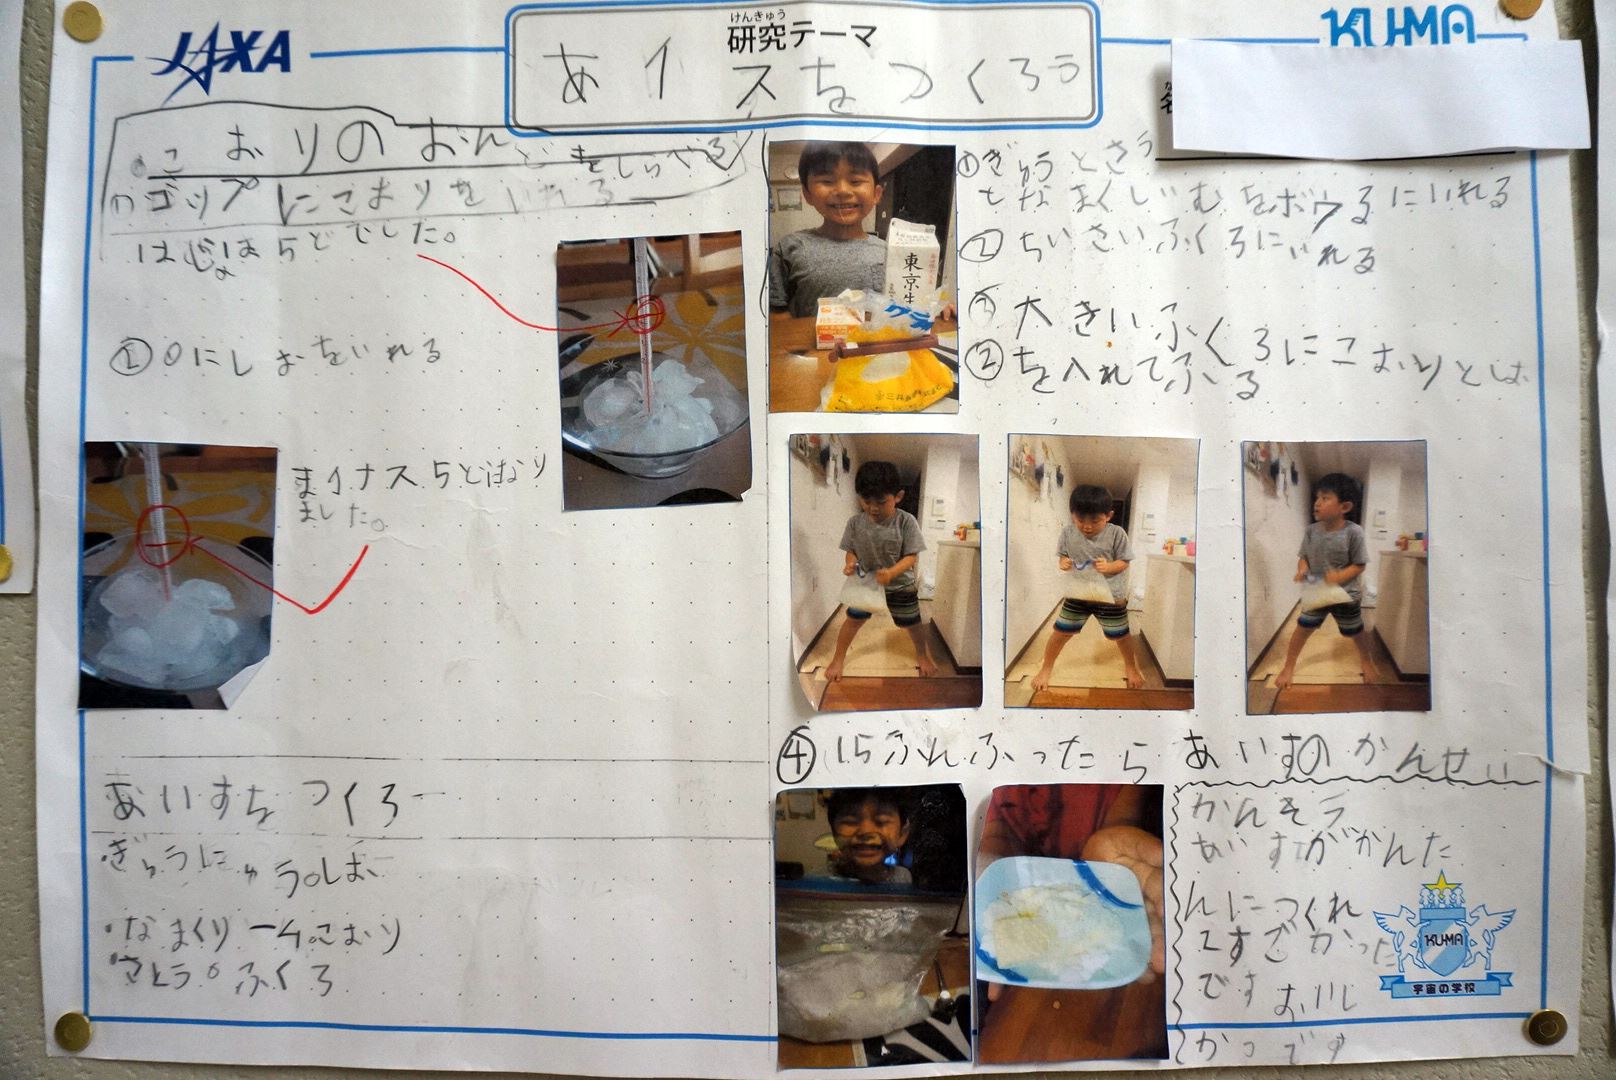 JAXA
けんきゅう
研究テーマ
あイスをつくろう
KU-MA
こおりのおんどをしらべる
① コップにこおりをいれる
はじめは5どでした。
② ①にしおをいれる
まイナス5とになり
ました。
あいすをつくろー
ぎゅうにゅう。しお
・なまくりーム。こおり
・さとう。ふくろ
東京牛
① ぎゅうとさう
となまくじいむをボウるにいれる
② ちいさいふくろにいれる
③ 大きいふくろにこおりとしお
②を入れてふる
④ 15ふんふったらあいすのかんせい
かんそう
あいすがかんた
んにつくれ
てすごかった
です おいし
かつです
KU-MA
宇宙の学校